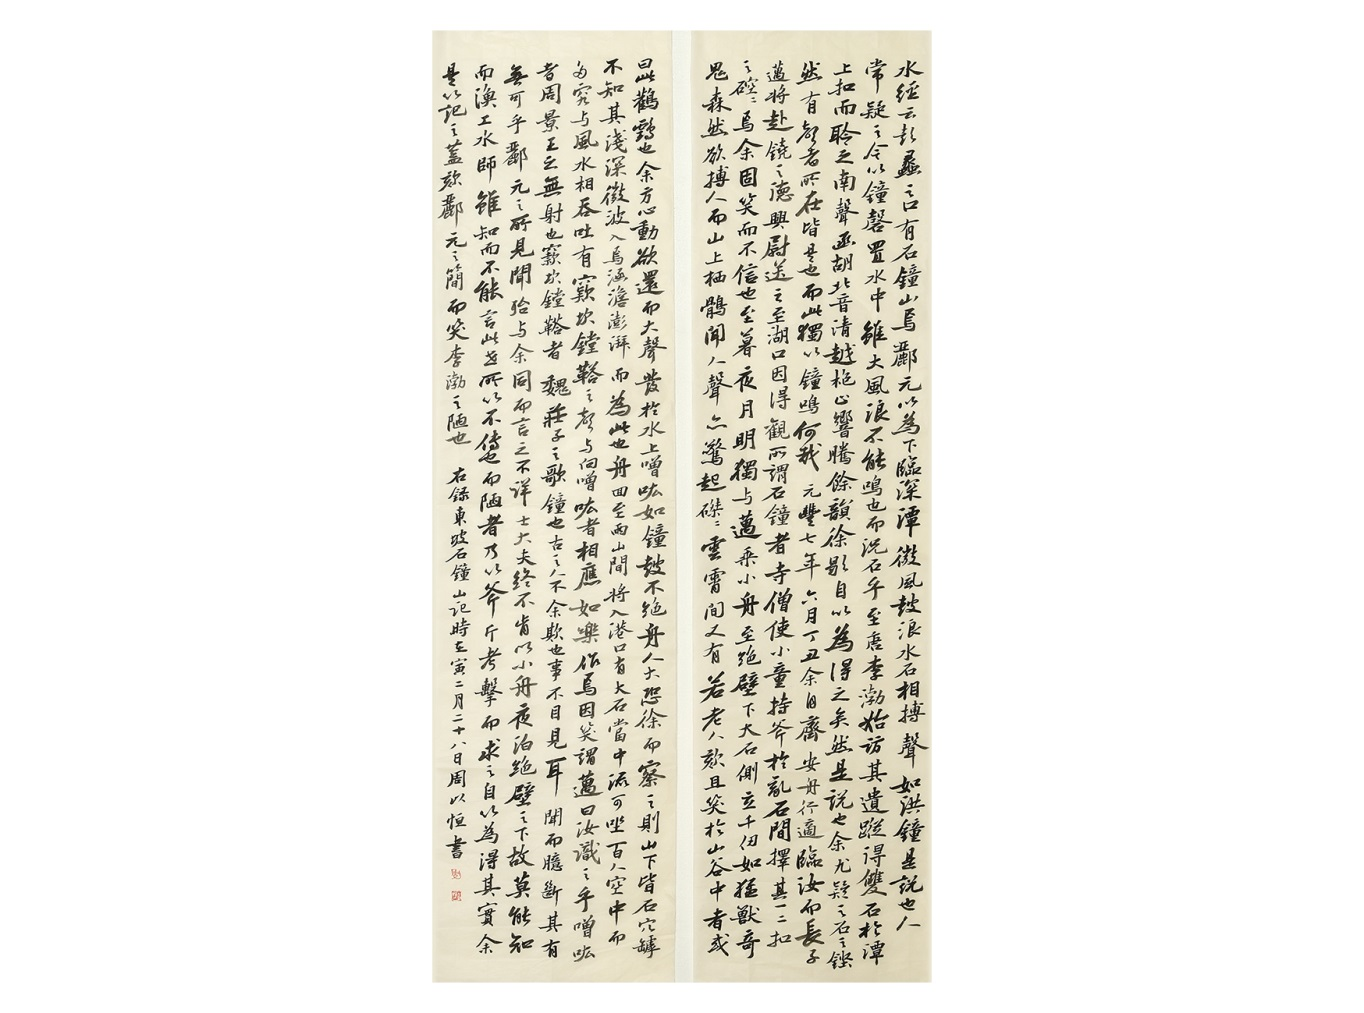 水經云彭蠡之口有石鐘山焉酈元以為下臨深潭微風鼓浪水石相搏聲如洪鐘是說也人
常疑之今以鐘磬置水中雖大風浪不能鳴也而況石乎至唐李渤始訪其遺蹤得雙石於潭
上扣而聆之南聲函胡北音清越枹止響騰餘韻徐歇自以為得之矣然是說也余尤疑之石之鏗
然有聲者所在皆是也而此獨以鐘鳴何哉元豐七年六月丁丑余自齊安舟行適臨汝而長子
邁將赴饒之德興尉送之至湖口因得觀所謂石鐘者寺僧使小童持斧於亂石間擇其一二扣
之硿硿焉余固笑而不信也至暮夜月明獨与邁乘小舟至絶壁下大石側立千仞如猛獸奇
鬼森然欲搏人而山上栖鶻聞人聲亦驚起磔磔雲霄間又有若老人欬且笑於山谷中者或
曰此鸛鶴也余方心動欲還而大聲發於水上噌吰如鐘鼓不絶舟人大恐徐而察之則山下皆石穴罅
不知其淺深微波入焉涵澹澎湃而為此也舟回至兩山間將入港口有大石當中流可坐百人空中而
多竅与風水相吞吐有窾坎鏜鞳之聲与向噌吰者相應如樂作焉因笑謂邁曰汝識之乎噌吰
者周景王之無射也窾坎鏜鞳者魏莊子之歌鐘也古之人不余欺也事不目見耳聞而臆斷其有
無可乎酈元之所見聞殆与余同而言之不詳士大夫終不肯以小舟夜泊絶壁之下故莫能知
而漁工水師雖知而不能言此世所以不傳也而陋者乃以斧斤考擊而求之自以為得其實余
是以記之蓋歎酈元之簡而笑李渤之陋也 右錄東坡石鐘山記時在寅二月二十八日周以恒書